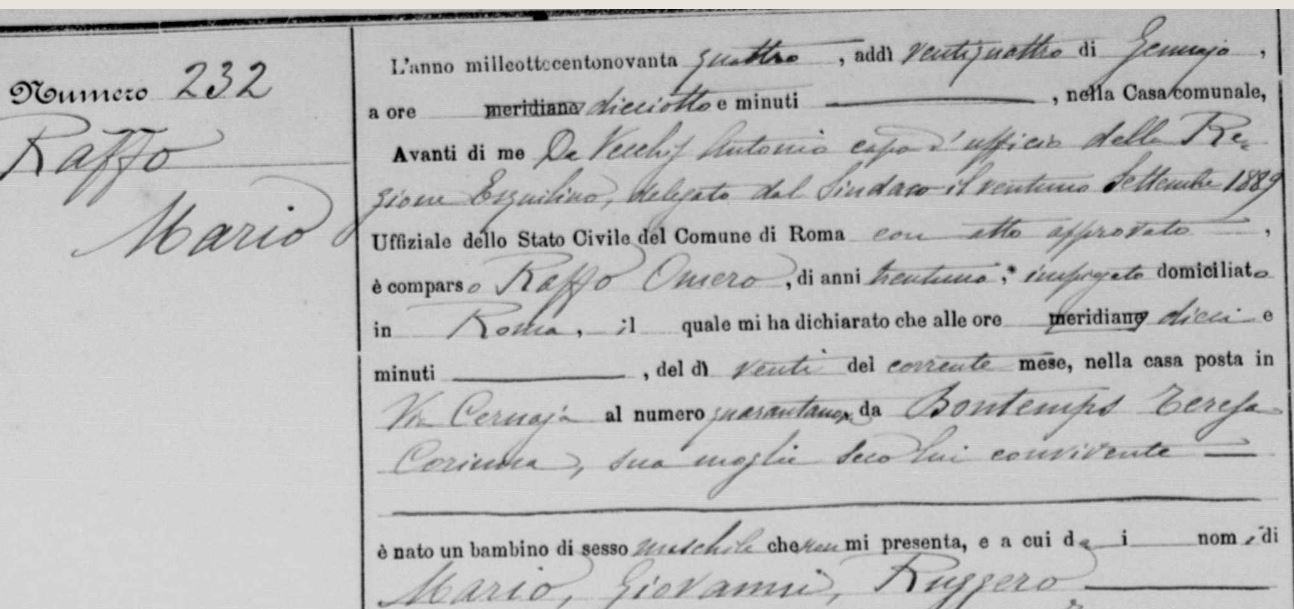 Numero 232
Raffo
Mario
L'anno milleottocentonovanta quattro, addì ventiquattro di Gennajo,
a ore meridiane dieciotto e minuti ———, nella Casa comunale,
Avanti di me De Vecchis Antonio capo d'ufficio della Re-
gione Esquilino, delegato dal Sindaco il ventuno Settembre 1889
Uffiziale dello Stato Civile del Comune di Roma con atto approvato,
è comparso Raffo Omero, di anni trentuno, impiegato domiciliato
in Roma, il quale mi ha dichiarato che alle ore meridiane dieci e
minuti ———, del dì venti del corrente mese, nella casa posta in
Via Cernaja al numero da Bontemps Teresa
Corinna, sua moglie seco lui convivente —
è nato un bambino di sesso maschile che non mi presenta, e a cui da i nomi di
Mario, Giovanni, Ruggero ———